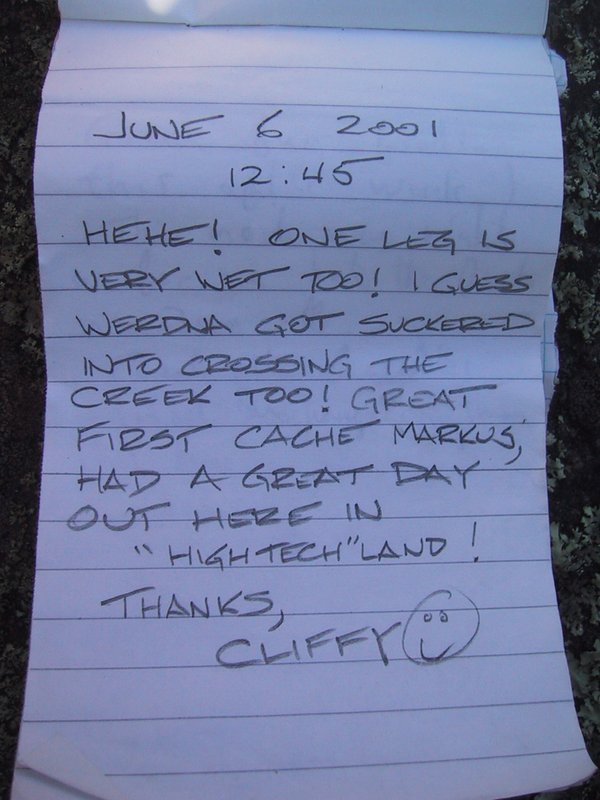 JUNE 6 2001
12:45
HEHE! ONE LEG IS
VERY WET TOO! I GUESS
WERDNA GOT SUCKERED
INTO CROSSING THE
CREEK TOO! GREAT
FIRST CACHE MARKUS,
HAD A GREAT DAY
OUT HERE IN
"HIGH TECH" LAND!
THANKS,
CLIFFY